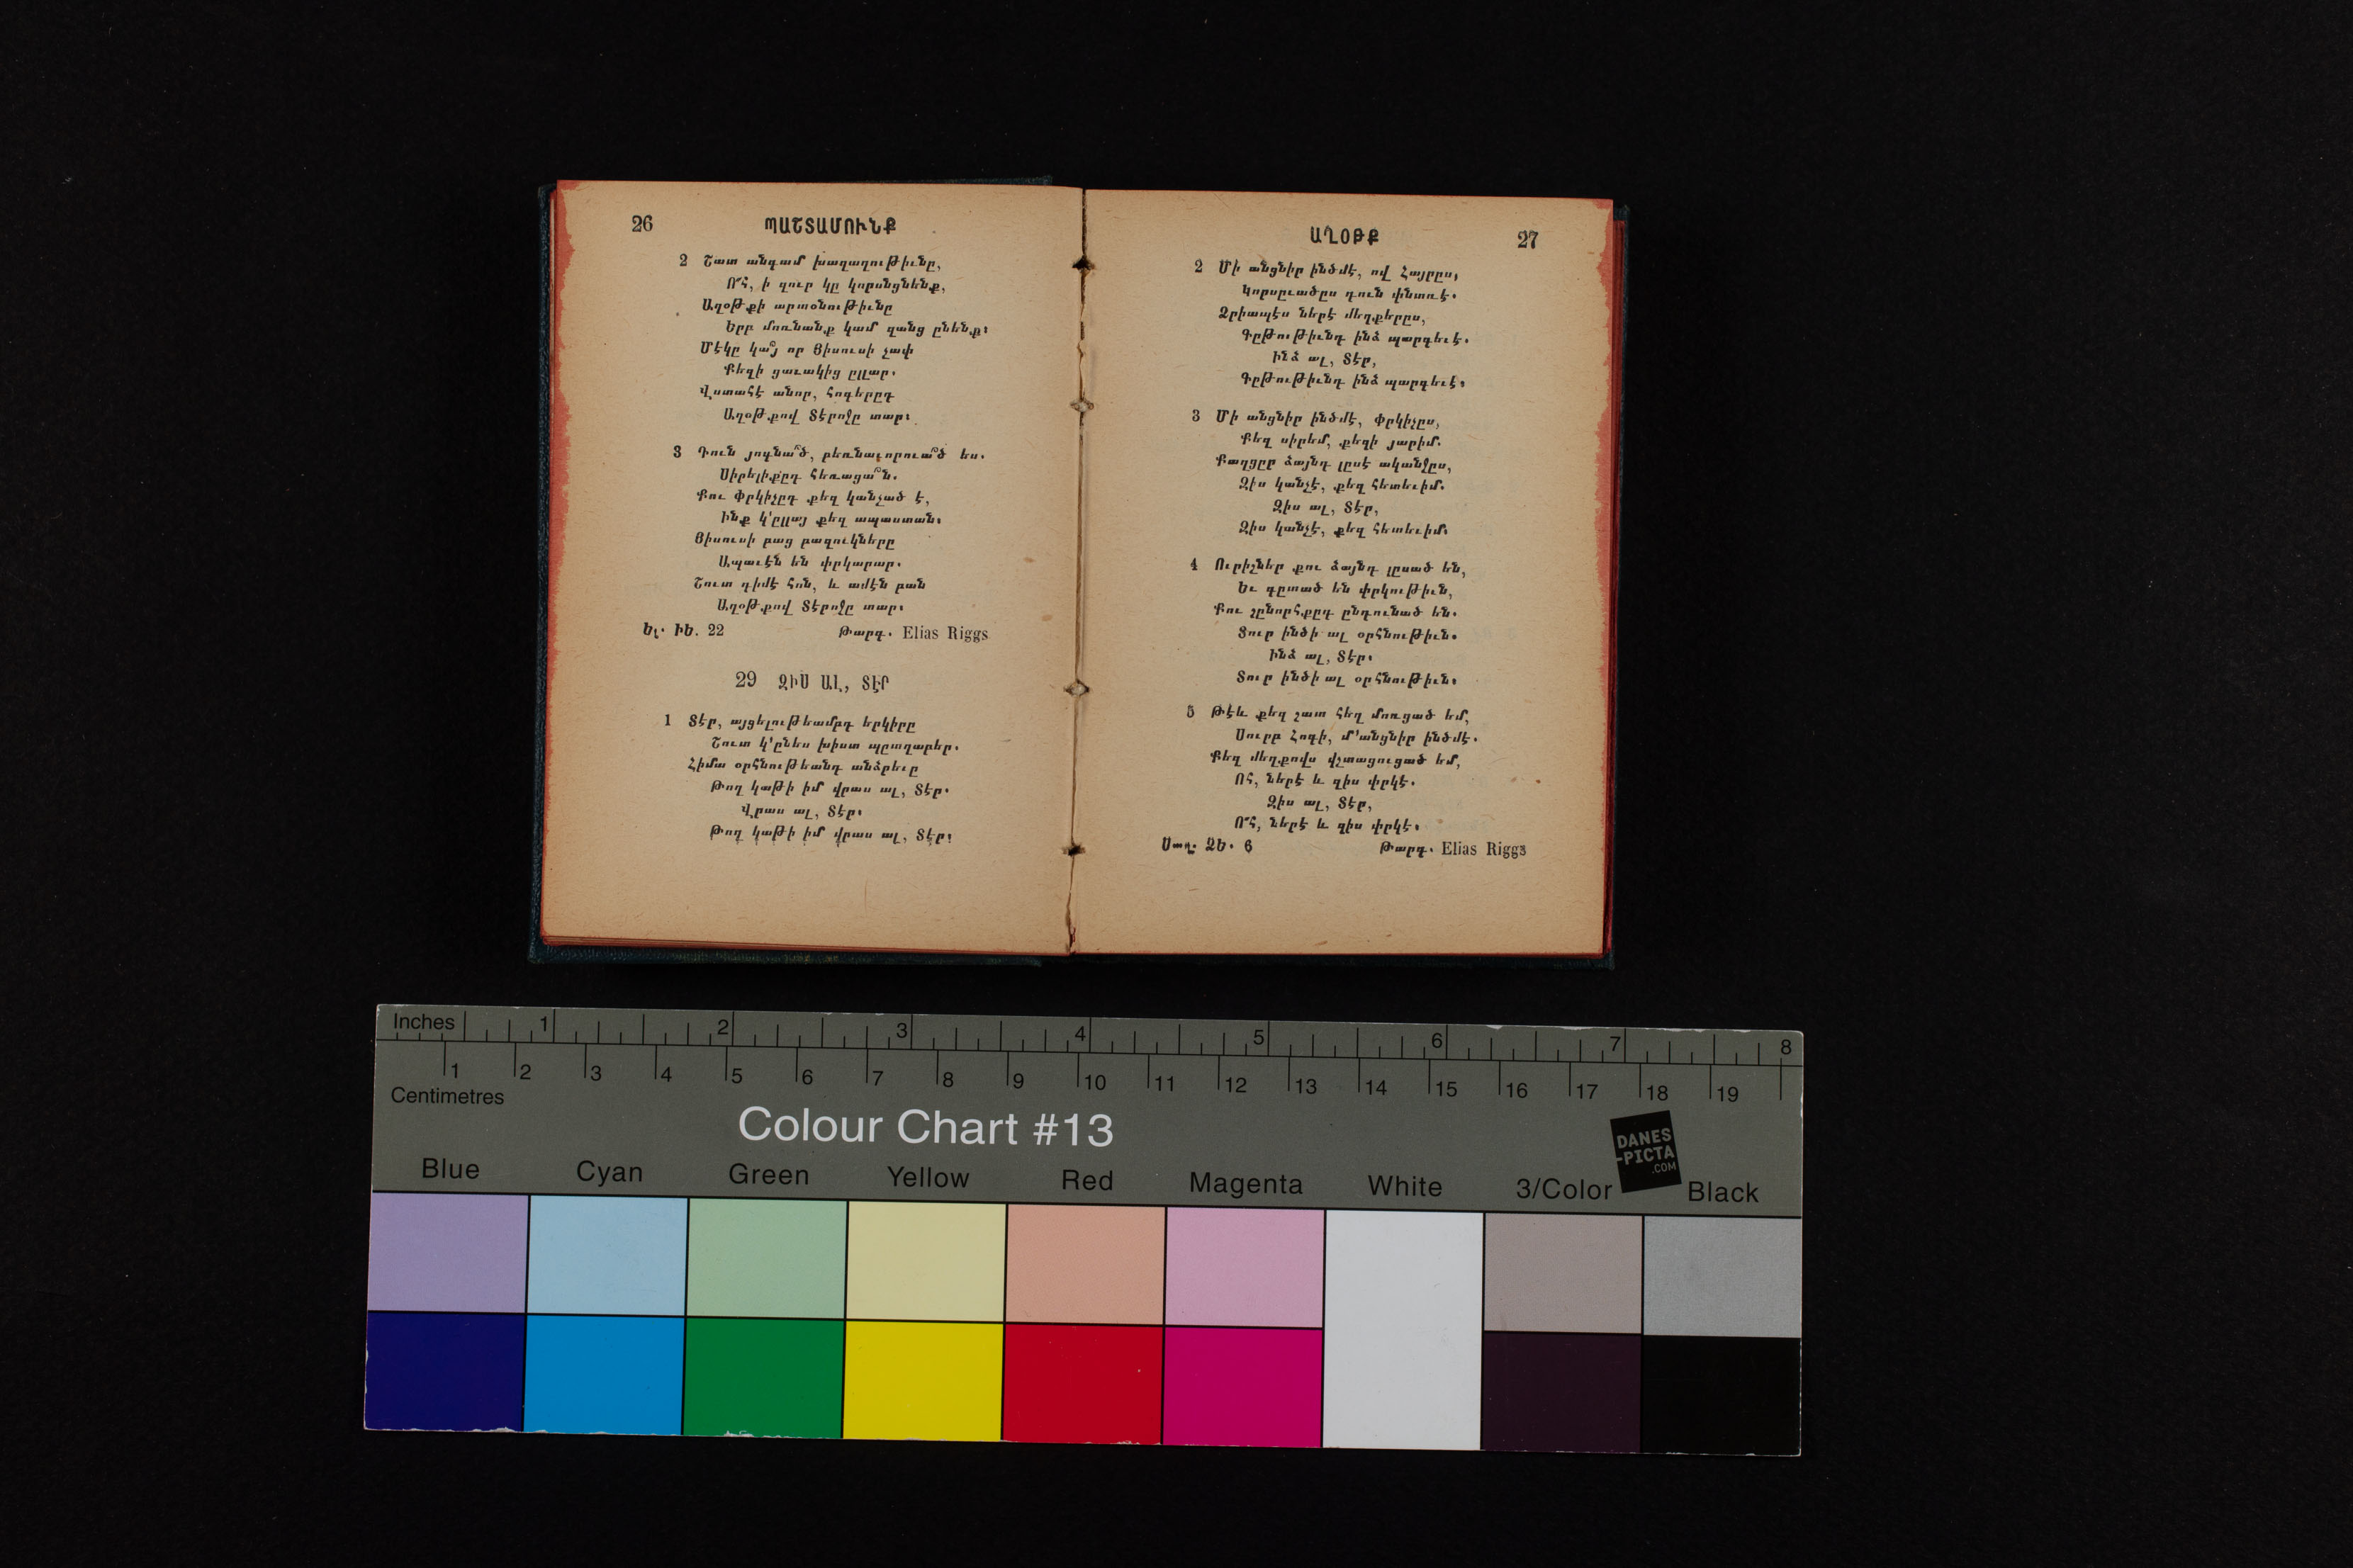 26 ՊԱՇՏԱՄՈՒՆՔ
2 Շատ անգամ խաղաղութիւնը,
Ո՜հ, ի զուր կը կորսնցնենք,
Աղօթքի արտօնութիւնը
Երբ մոռնանք կամ զանց ընենք։
Մէկը կա՞յ որ Յիսուսի չափ
Քեզի ցաւակից ըլլար.
Վստահէ անոր, հոգերըդ
Աղօթքով Տէրոջը տար։
3 Դուն յոգնա՞ծ, բեռնաւորուա՞ծ ես.
Սիրելիքըդ հեռացա՞ն.
Քու Փրկիչըդ քեզ կանչած է,
Ինք կ'ըլլայ քեզ ապաստան։
Յիսուսի բաց բազուկները
Ապաւէն են փրկարար.
Շուտ դիմէ հոն, և ամէն բան
Աղօթքով Տէրոջը տար։
Ել. ԻԵ. 22 Թարգ. Elias Riggs
29 ԶԻՍ ԱԼ, ՏԷՐ
1 Տէր, այցելութեամբդ երկիրը
Շուտ կ'ընես խիստ պըտղաբեր.
Հիմա օրհնութեանդ անձրեւը
Թող կաթի իմ վրաս ալ, Տէր.
Վրաս ալ, Տէր։
Թող կաթի իմ վրաս ալ, Տէր։
ԱՂՕԹՔ 27
2 Մի անցնիր ինձմէ, ով Հայրըս,
Կորսըւածըս դուն փնտռէ.
Ձրիապէս ներէ մեղքերըս,
Գըթութիւնդ ինձ պարգեւէ.
Ինձ ալ, Տէր,
Գըթութիւնդ ինձ պարգեւէ։
3 Մի անցնիր ինձմէ, Փրկիչըս,
Քեզ սիրեմ, քեզի յարիմ.
Քաղցըր ձայնդ լըսէ ականջըս,
Զիս կանչէ, քեզ հետեւիմ.
Զիս ալ, Տէր,
Զիս կանչէ, քեզ հետեւիմ։
4 Ուրիշներ քու ձայնդ լըսած են,
Եւ գըտած են փրկութիւն,
Քու շընորհքըդ ընդունած են.
Տուր ինծի ալ օրհնութիւն.
Ինձ ալ, Տէր.
Տուր ինծի ալ օրհնութիւն։
5 Թէև քեզ շատ հեղ մոռցած եմ,
Սուրբ Հոգի, մ'անցնիր ինձմէ.
Քեզ մեղքովս վշտացուցած եմ,
Ոհ, ներէ և զիս փրկէ.
Զիս ալ, Տէր,
Ո՜հ, ներէ և զիս փրկէ։
Սաղ. ՁԵ. 6 Թարգ. Elias Riggs
Inches 1 2 3 4 5 6 7 8
1 2 3 4 5 6 7 8 9 10 11 12 13 14 15 16 17 18 19
Centimetres
Colour Chart #13
DANES
-PICTA
.COM
Blue Cyan Green Yellow Red Magenta White 3/Color Black